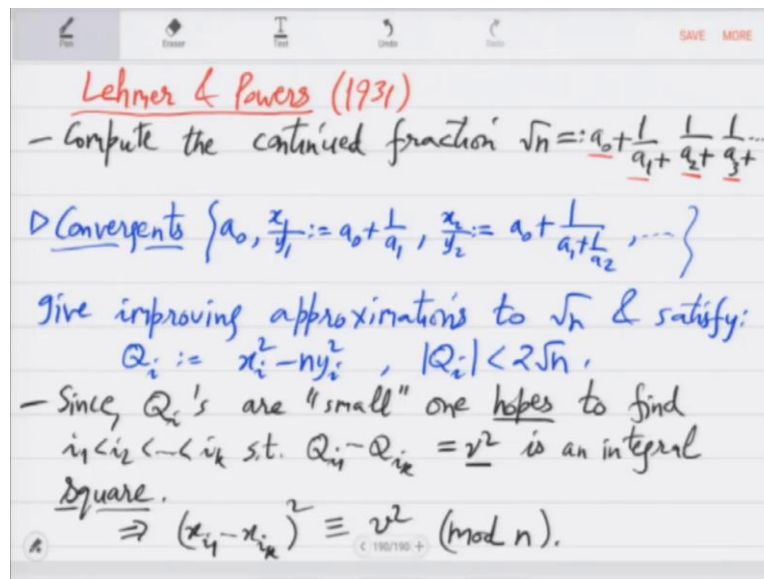 Pen Eraser Text Undo Redo SAVE MORE
Lehmer & Powers (1931)
– Compute the continued fraction √n =: a₀ + 1/a₁+ 1/a₂+ 1/a₃+ ...
▷ Convergents {a₀, x₁/y₁ := a₀ + 1/a₁, x₂/y₂ := a₀ + 1/(a₁ + 1/a₂), ....}
give improving approximations to √n & satisfy:
Qᵢ := xᵢ² – nyᵢ², |Qᵢ| < 2√n.
– Since, Qᵢ's are "small" one hopes to find
i₁ < i₂ < --- < iₖ s.t. Qᵢ₁ -- Qᵢₖ = v² is an integral
square.
⇒ (xᵢ₁ -- xᵢₖ)² ≡ v² (mod n).
< 190/190 +